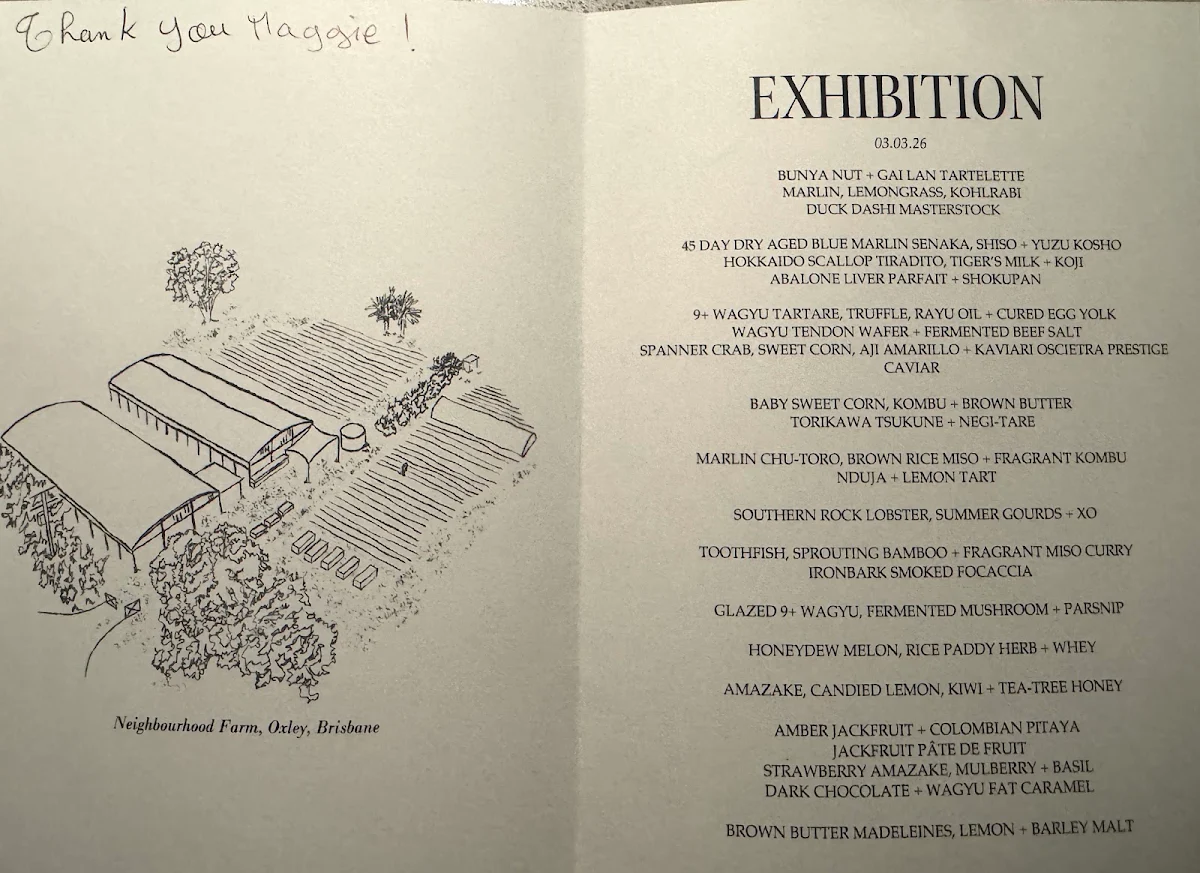 Thank you Maggie !
Neighbourhood Farm, Oxley, Brisbane
EXHIBITION
03.03.26
BUNYA NUT + GAI LAN TARTELETTE
MARLIN, LEMONGRASS, KOHLRABI
DUCK DASHI MASTERSTOCK
45 DAY DRY AGED BLUE MARLIN SENAKA, SHISO + YUZU KOSHO
HOKKAIDO SCALLOP TIRADITO, TIGER'S MILK + KOJI
ABALONE LIVER PARFAIT + SHOKUPAN
9+ WAGYU TARTARE, TRUFFLE, RAYU OIL + CURED EGG YOLK
WAGYU TENDON WAFER + FERMENTED BEEF SALT
SPANNER CRAB, SWEET CORN, AJI AMARILLO + KAVIARI OSCIETRA PRESTIGE
CAVIAR
BABY SWEET CORN, KOMBU + BROWN BUTTER
TORIKAWA TSUKUNE + NEGI-TARE
MARLIN CHU-TORO, BROWN RICE MISO + FRAGRANT KOMBU
NDUJA + LEMON TART
SOUTHERN ROCK LOBSTER, SUMMER GOURDS + XO
TOOTHFISH, SPROUTING BAMBOO + FRAGRANT MISO CURRY
IRONBARK SMOKED FOCACCIA
GLAZED 9+ WAGYU, FERMENTED MUSHROOM + PARSNIP
HONEYDEW MELON, RICE PADDY HERB + WHEY
AMAZAKE, CANDIED LEMON, KIWI + TEA-TREE HONEY
AMBER JACKFRUIT + COLOMBIAN PITAYA
JACKFRUIT PÂTE DE FRUIT
STRAWBERRY AMAZAKE, MULBERRY + BASIL
DARK CHOCOLATE + WAGYU FAT CARAMEL
BROWN BUTTER MADELEINES, LEMON + BARLEY MALT